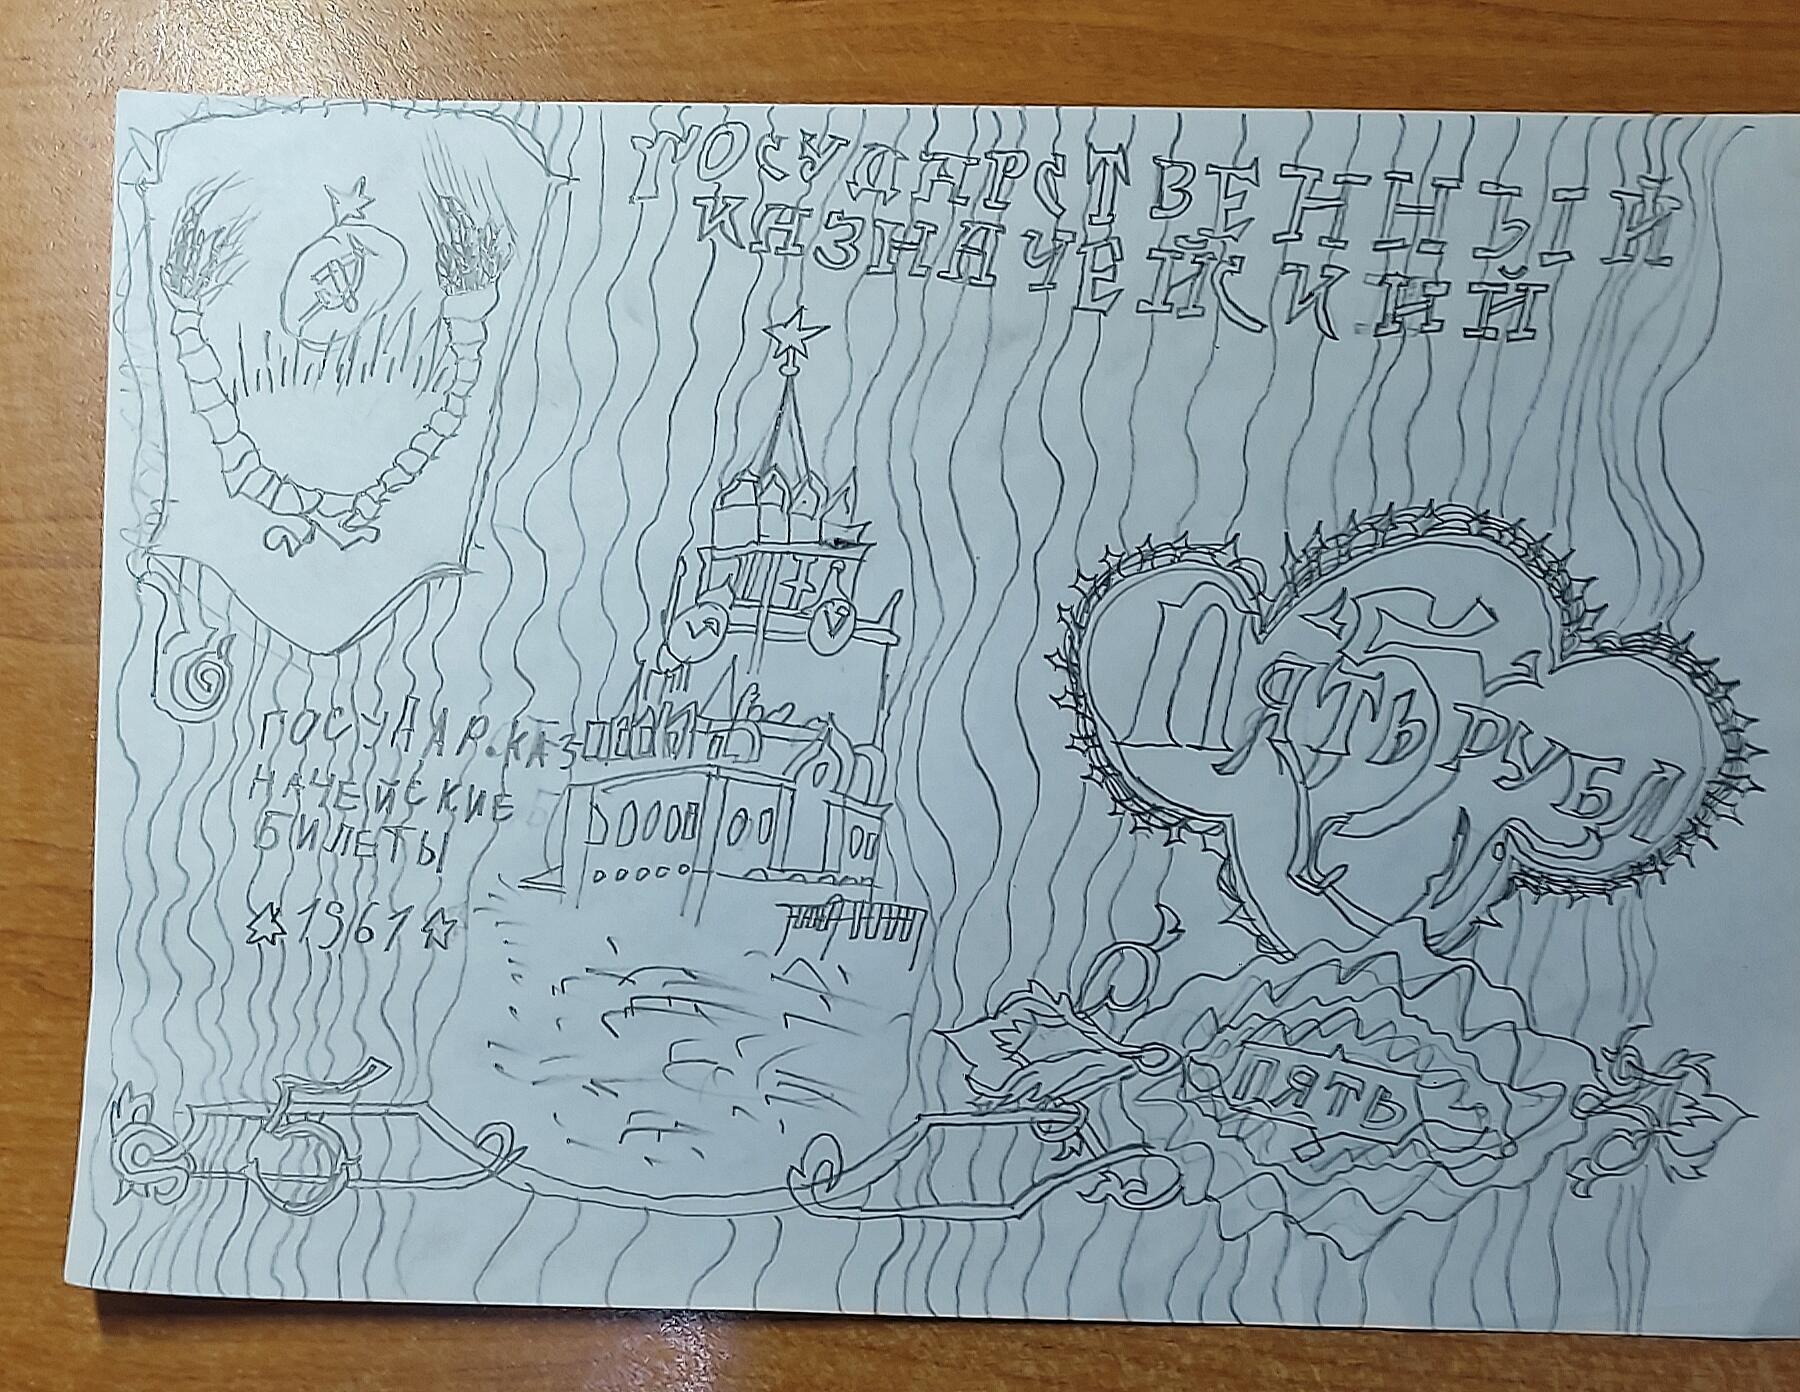 ГОСУДАРСТВЕННЫЙ
КАЗНАЧЕЙСКИЙ
5
ПЯТЬ РУБЛ
ГОСУДАР.КАЗ
НАЧЕЙСКИЕ
БИЛЕТЫ
1961
5
ПЯТЬ